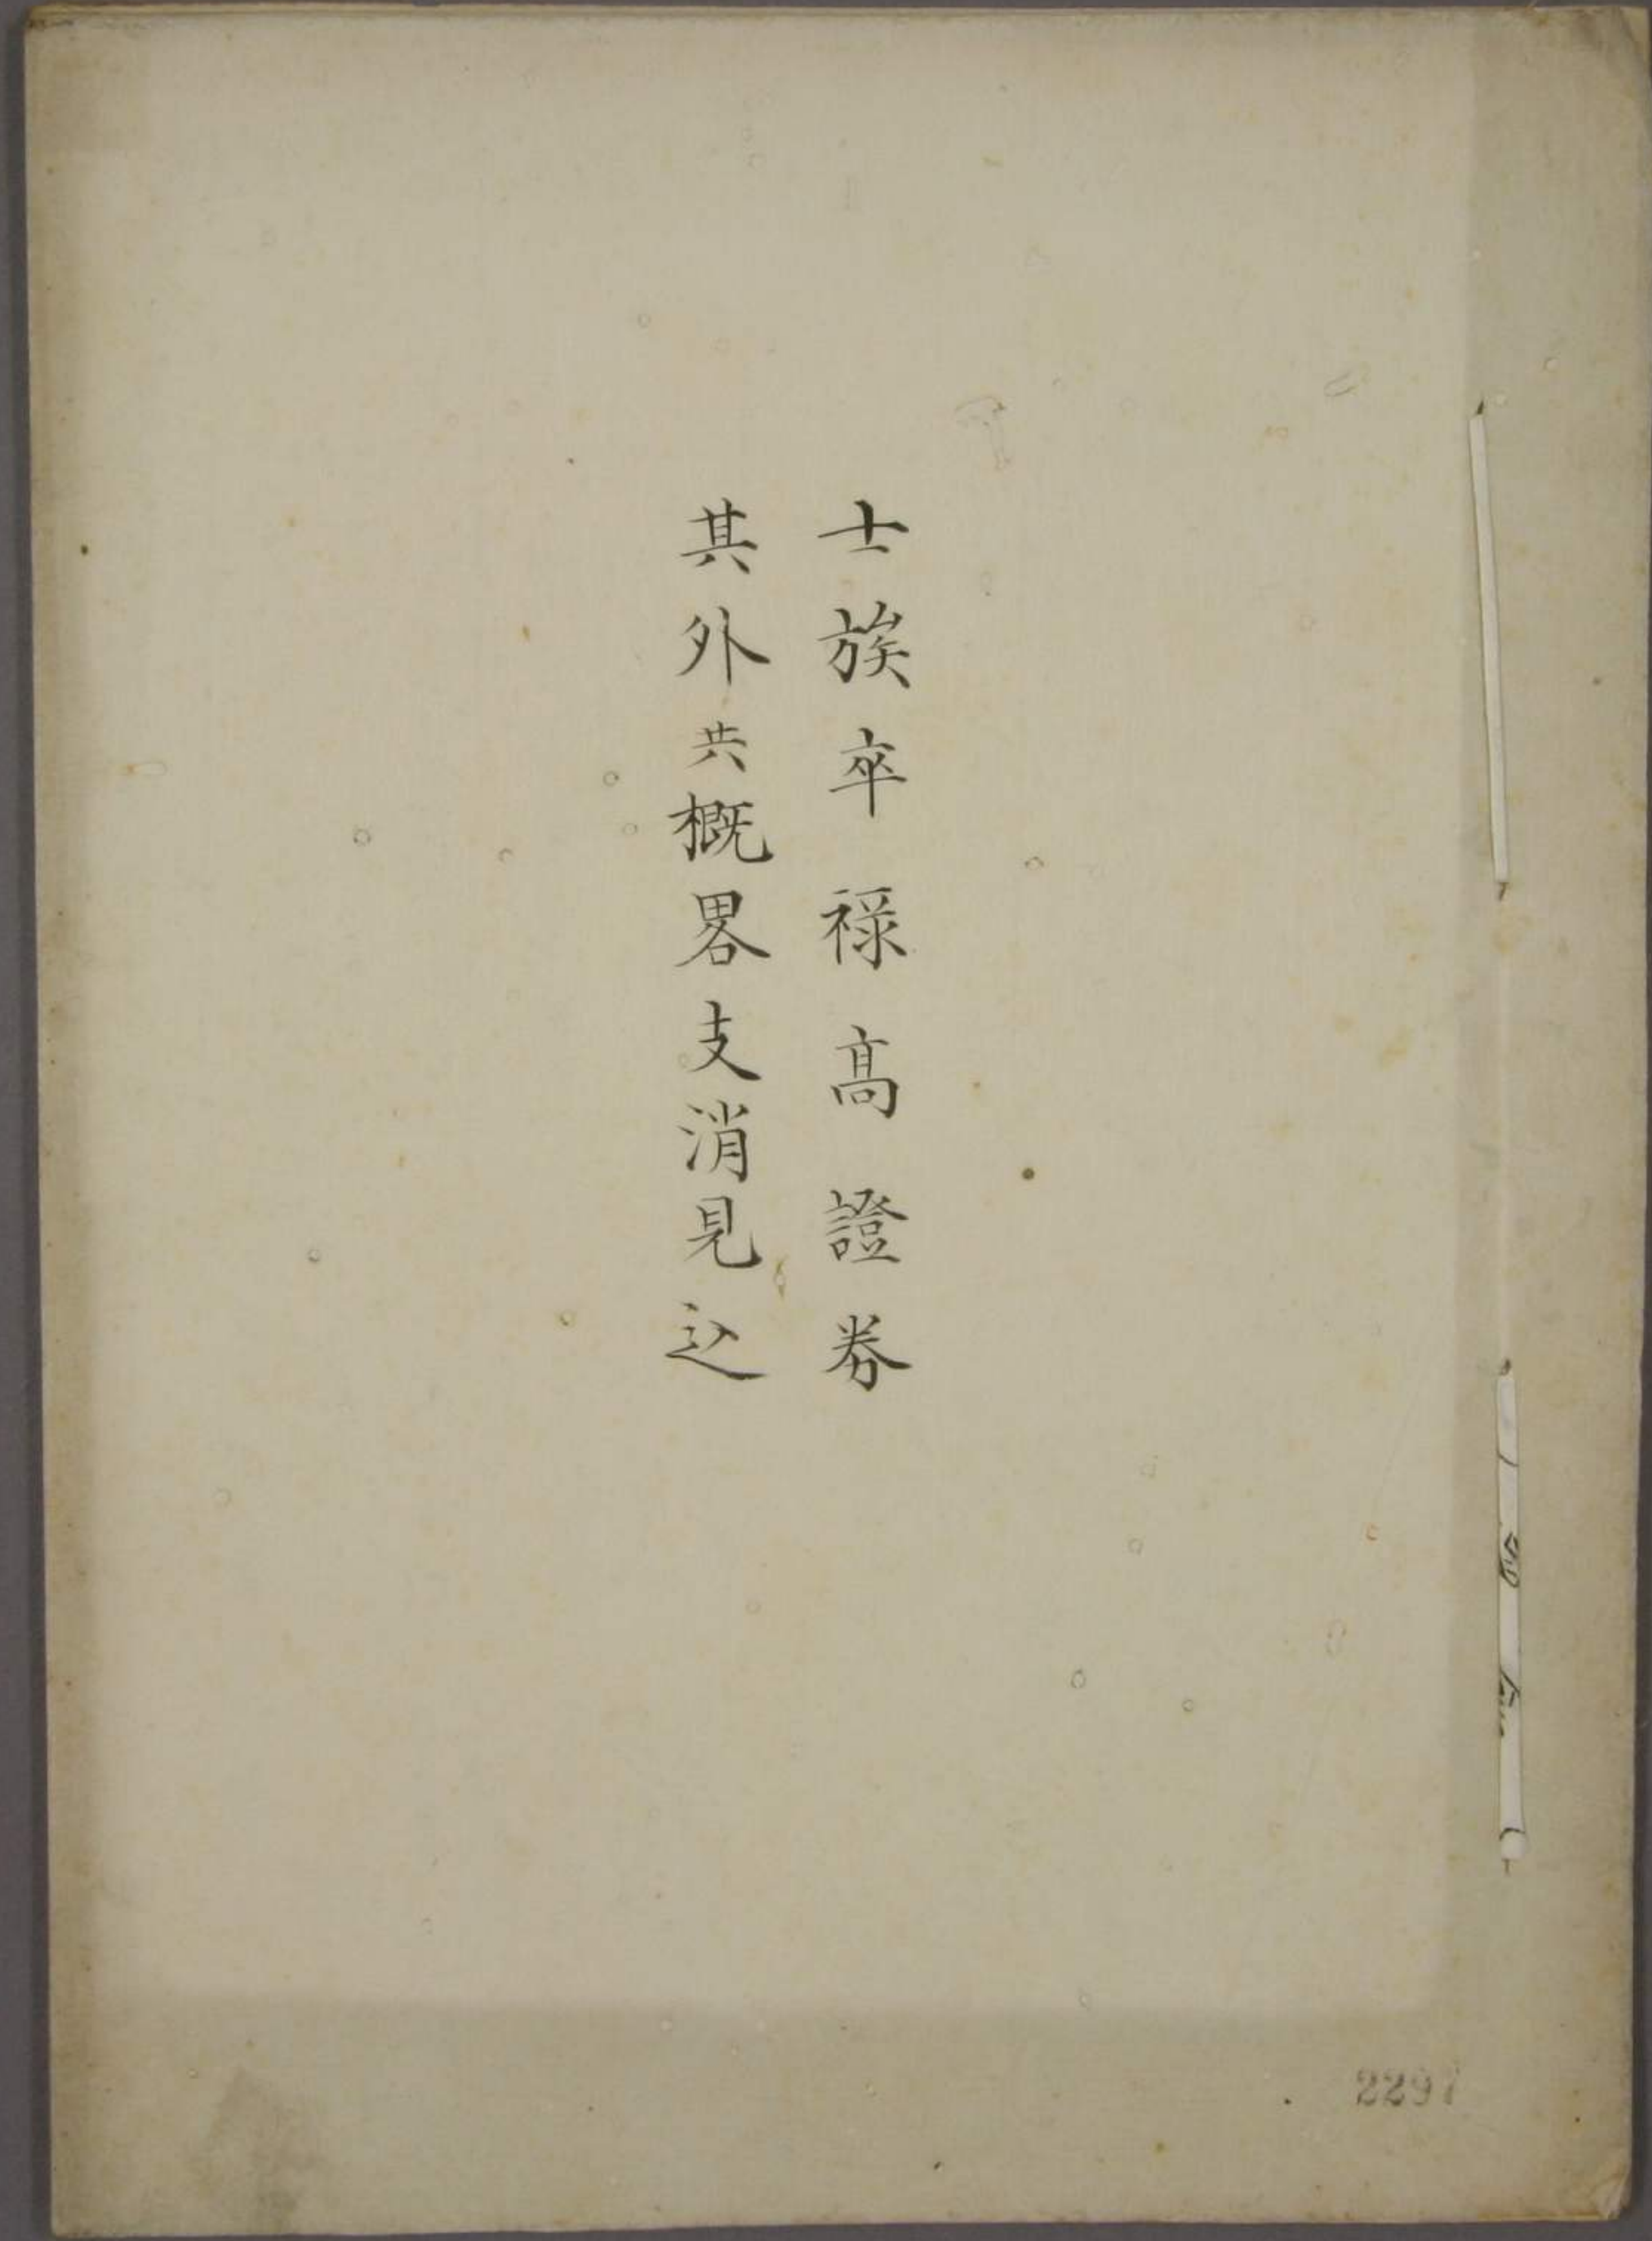 士族卒禄高證券
其外共概畧支消見込
2297